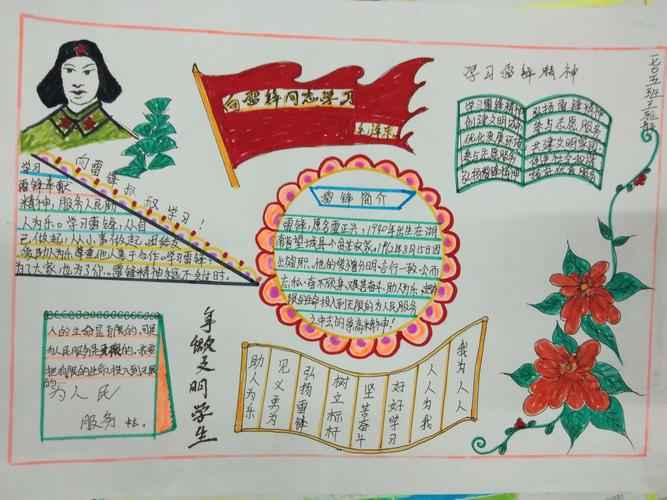 向雷锋同志学习
毛泽东
学习雷锋精神
学习雷锋精神
创建文明城市
优化发展环境
参与志愿服务
弘扬雷锋精神
弘扬雷锋精神
参与志愿服务
共建文明家园
一七〇五班
向雷锋叔叔学习!
学习
雷锋奉献
精神,服务人民助
人为乐。学习雷锋,从自
己做起,从小事做起,
为了大家,也为了你。雷锋精神永远不过时。
雷锋简介
雷锋,原名雷正兴,1940年出生在湖
南省望城县一个贫苦农家。1962年8月15日因
公殉职。他的憎爱分明、言行一致、公而
忘私、奋不顾身、艰苦奋斗、助人为乐,把有
限的生命投入到无限的为人民服务
之中去的崇高精神!
人的生命是有限的,可是
为人民服务是无限的,我要
把有限的生命,投入到无限
的
为人民
服务中去。
争做文明学生
助人为乐
见义勇为
弘扬雷锋
树立标杆
坚苦奋斗
好好学习
人人为我
我为人人